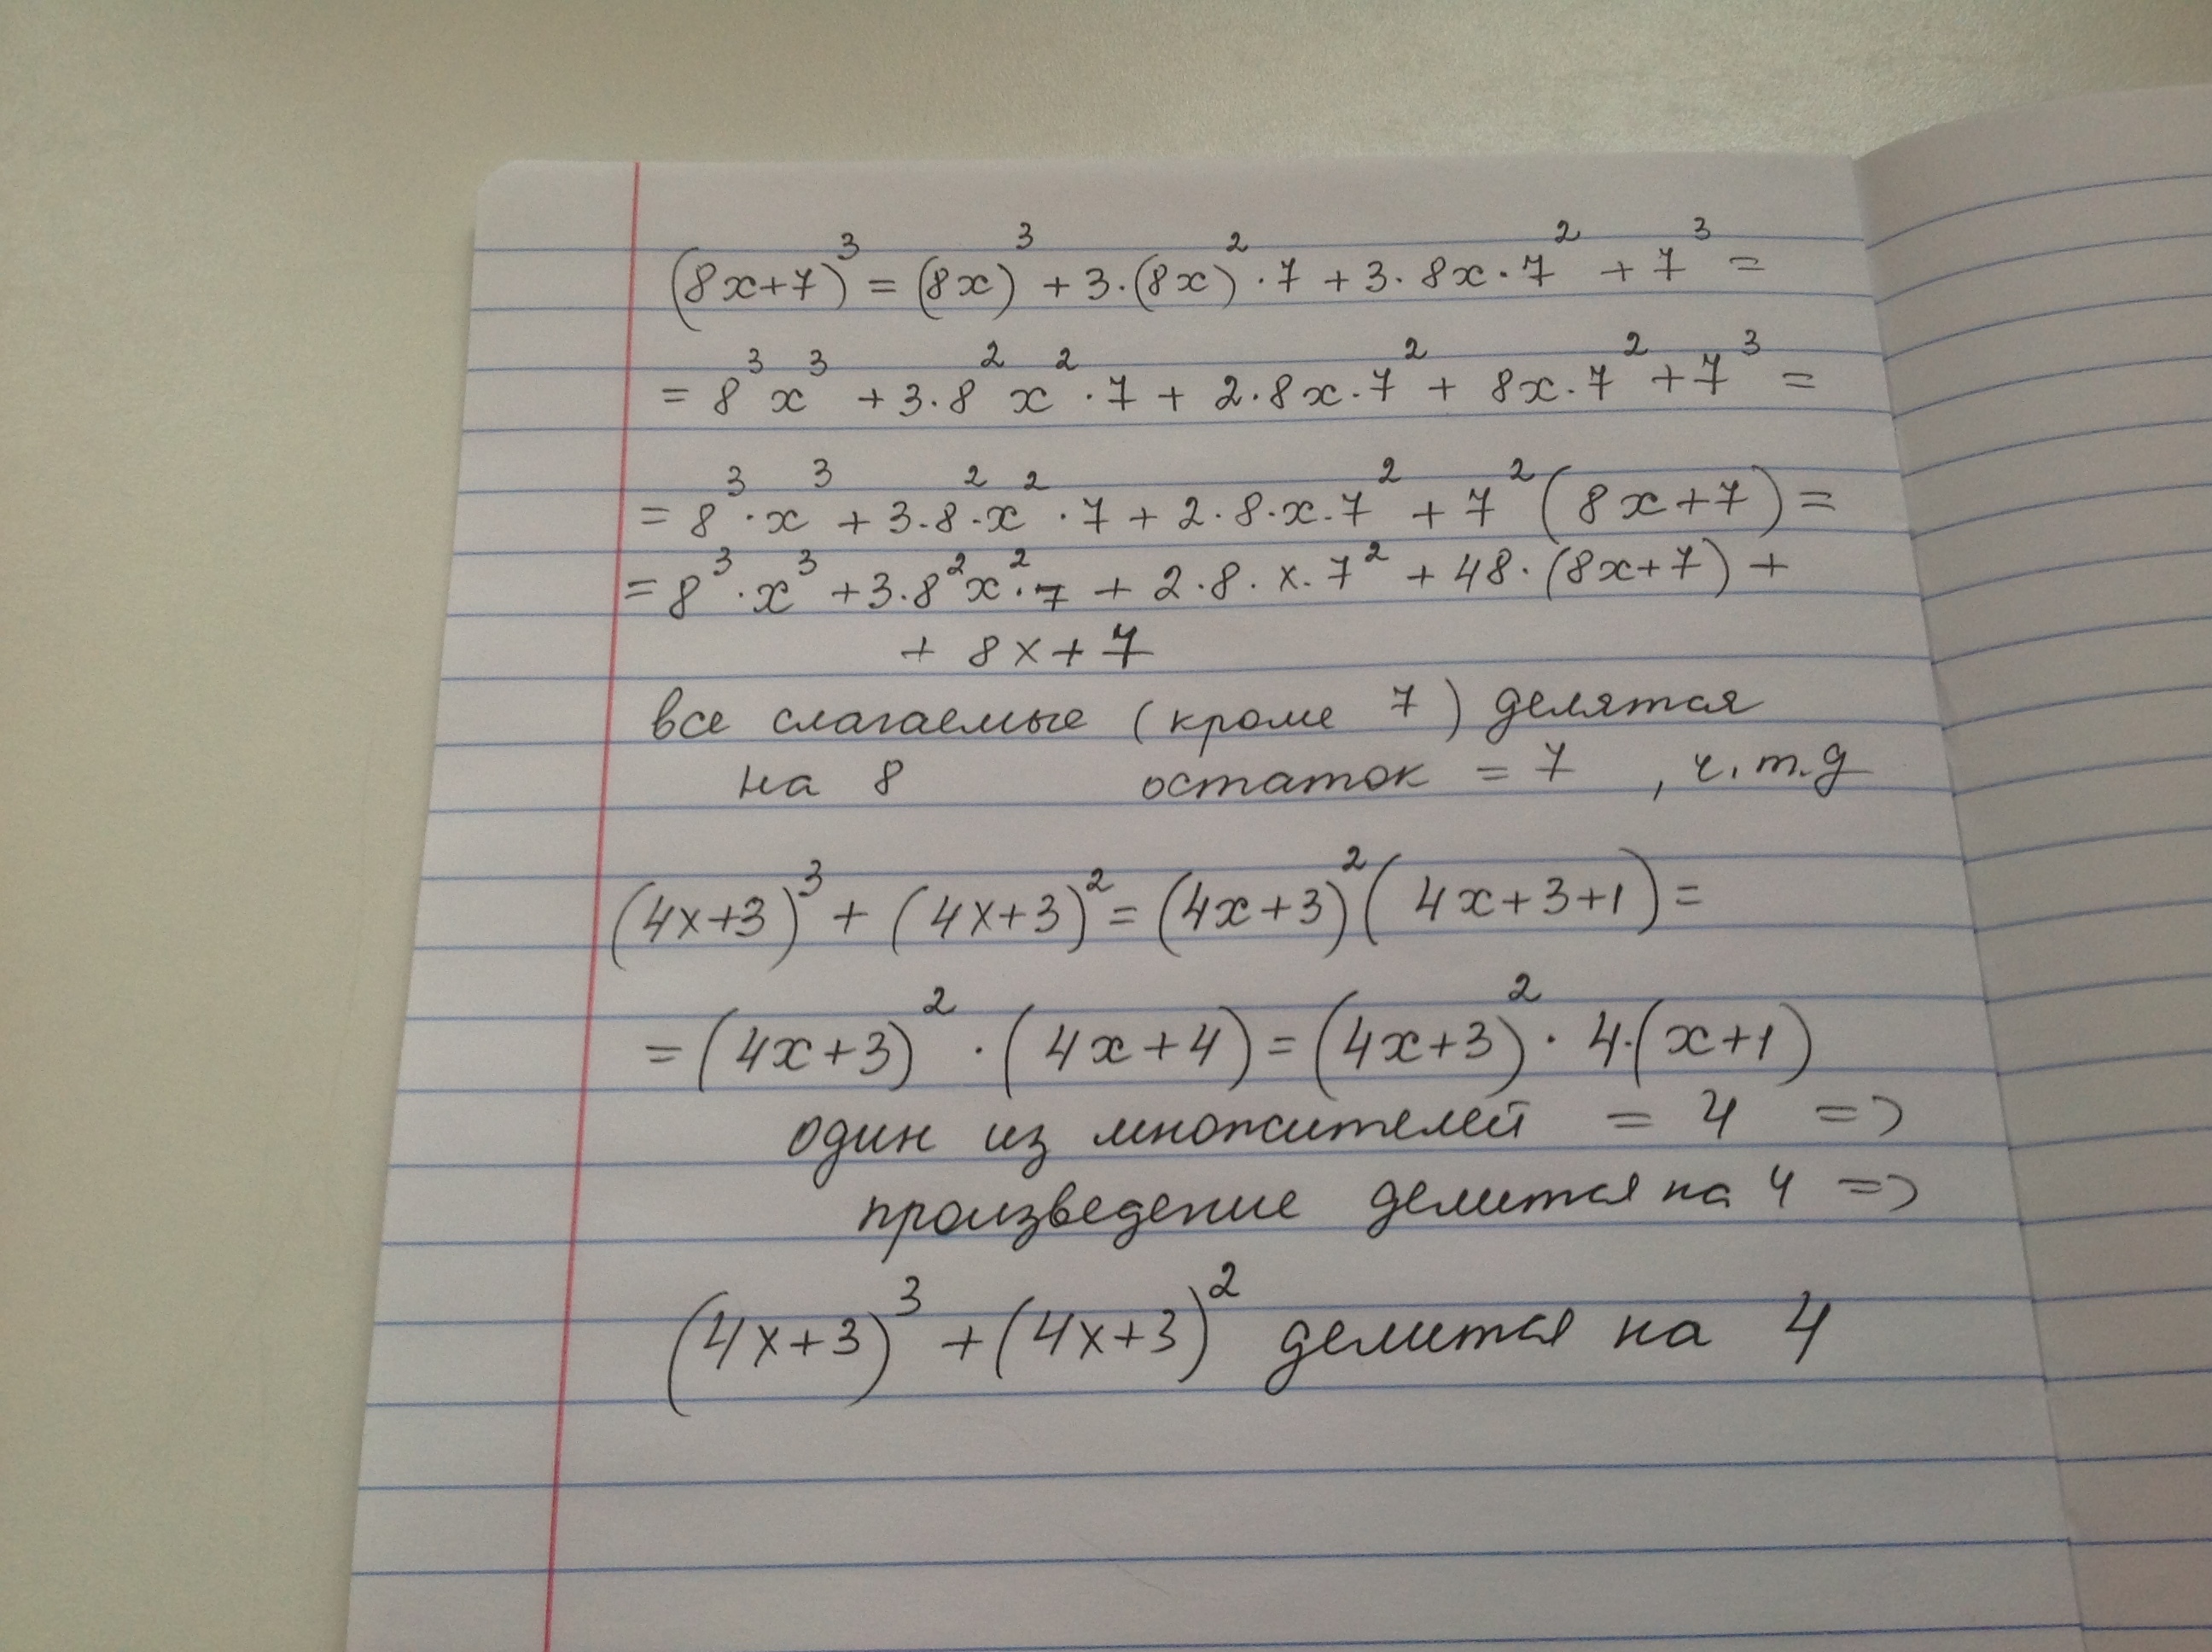 (8x+7)³ = (8x)³ + 3·(8x)²·7 + 3·8x·7² + 7³ =
= 8³x³ + 3·8²x²·7 + 2·8x·7² + 8x·7² + 7³ =
= 8³·x³ + 3·8²·x²·7 + 2·8·x·7² + 7²(8x+7) =
= 8³·x³ + 3·8²x²·7 + 2·8·x·7² + 48·(8x+7) +
+ 8x+7
все слагаемые (кроме 7) делятся
на 8 остаток = 7 , ч.т.д
(4x+3)³ + (4x+3)² = (4x+3)²(4x+3+1) =
= (4x+3)²·(4x+4) = (4x+3)²·4·(x+1)
один из множителей = 4 =>
произведение делится на 4 =>
(4x+3)³ + (4x+3)² делится на 4